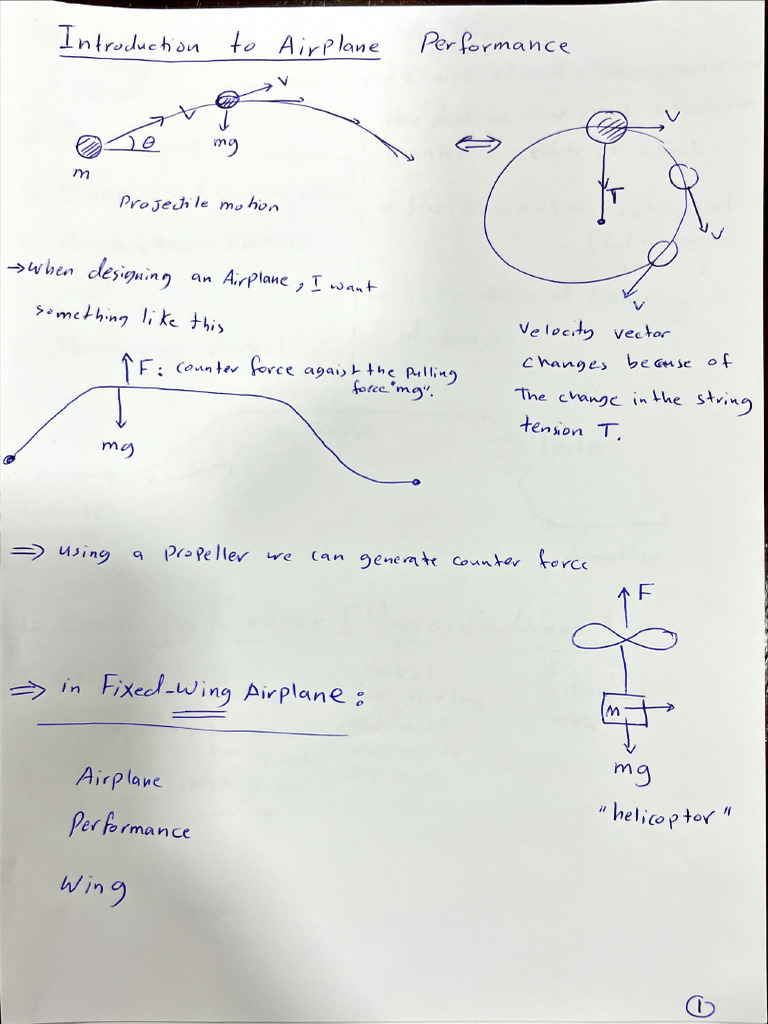 Introduction to Airplane Performance
V
V
θ
mg
m
Projectile motion
V
T
V
V
→ when designing an Airplane, I want
something like this
Velocity vector
changes because of
The change in the string
tension T.
F: counter force against the pulling
force "mg".
mg
⇒ using a propeller we can generate counter force
F
m
mg
"helicoptor"
⇒ in Fixed-Wing Airplane:
Airplane
Performance
Wing
1